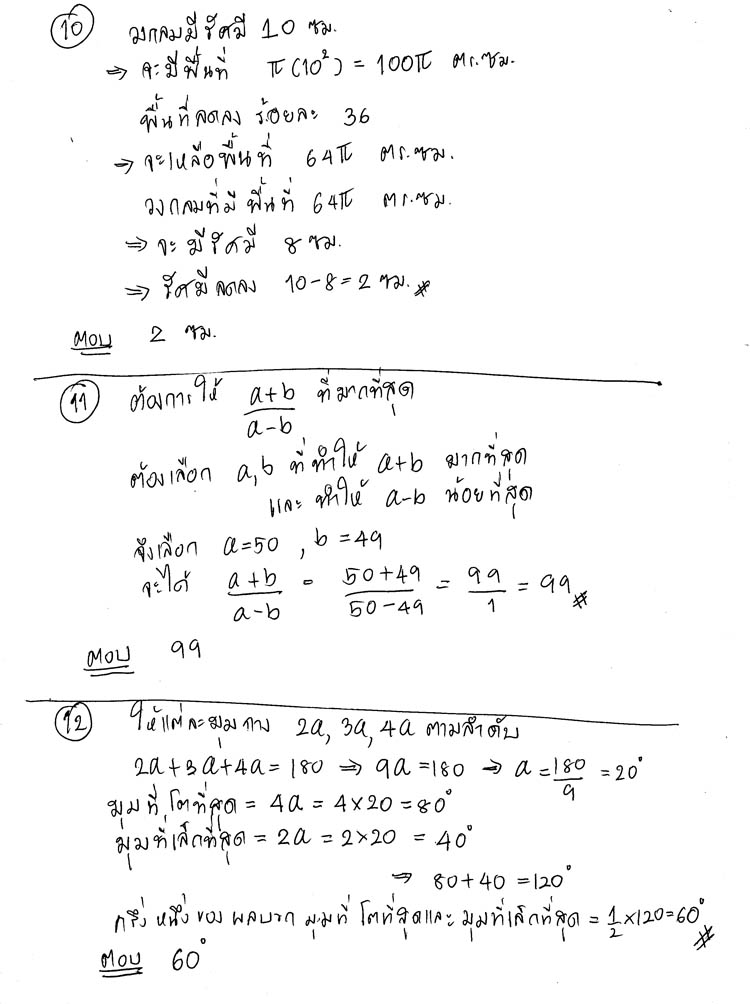 10 วงกลมมีรัศมี 10 ซม.
⇒ จะมีพื้นที่ π(10²) = 100π ตร.ซม.
พื้นที่ลดลง ร้อยละ 36
⇒ จะเหลือพื้นที่ 64π ตร.ซม.
วงกลมที่มีพื้นที่ 64π ตร.ซม.
⇒ จะมีรัศมี 8 ซม.
⇒ รัศมีลดลง 10-8=2 ซม. #
ตอบ 2 ซม.
11 ต้องการให้ (a+b)/(a-b) ที่มากที่สุด
ต้องเลือก a,b ที่ทำให้ a+b มากที่สุด
และ ทำให้ a-b น้อยที่สุด
จึงเลือก a=50 , b=49
จะได้ (a+b)/(a-b) = (50+49)/(50-49) = 99/1 = 99 #
ตอบ 99
12 ให้แต่ละมุมกาง 2a, 3a, 4a ตามลำดับ
2a+3a+4a=180 ⇒ 9a=180 ⇒ a=180/9=20°
มุมที่โตที่สุด = 4a = 4×20=80°
มุมที่เล็กที่สุด = 2a = 2×20 = 40°
⇒ 80+40=120°
ครึ่งหนึ่งของผลบวก มุมที่โตที่สุดและมุมที่เล็กที่สุด = 1/2×120=60° #
ตอบ 60°